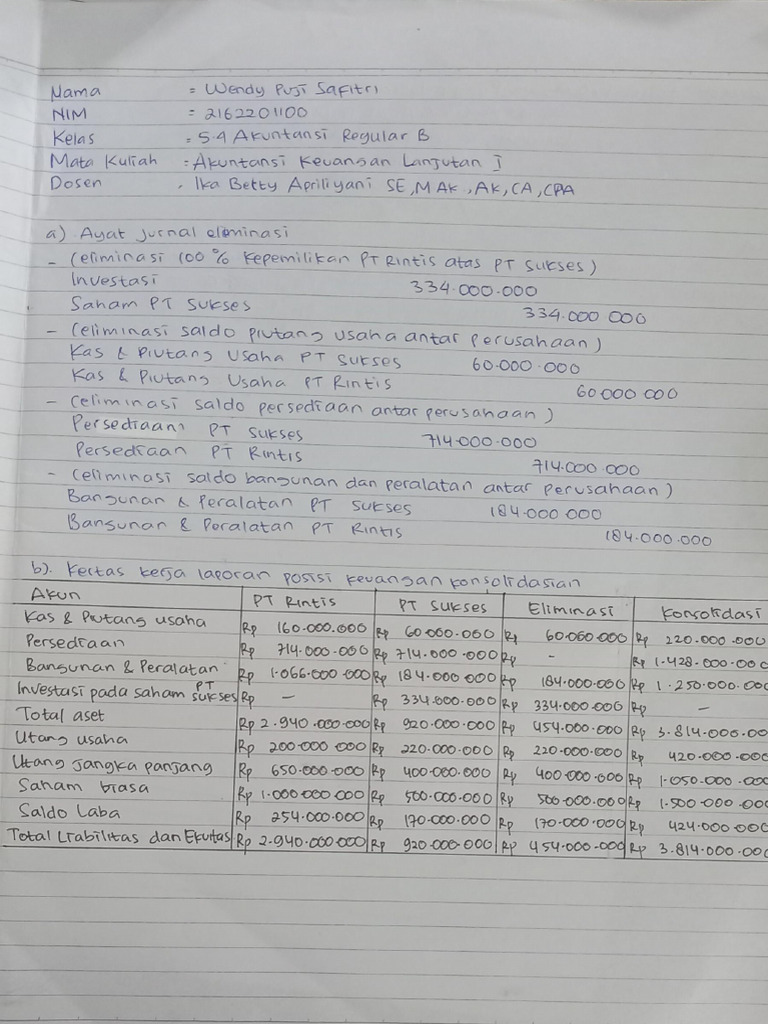 Nama = Wendy Puji Safitri
NIM = 2162201100
Kelas = 5.4 Akuntansi Regular B
Mata Kuliah = Akuntansi Keuangan Lanjutan I
Dosen . Ika Betty Apriliyani SE, M AK, AK, CA, CPA
a) Ayat jurnal eleminasi
- (eliminasi 100% kepemilikan PT Rintis atas PT Sukses)
Investasi 334.000.000
Saham PT Sukses 334.000 000
- (eliminasi saldo piutang usaha antar perusahaan)
Kas & Piutang Usaha PT Sukses 60.000.000
Kas & Piutang Usaha PT Rintis 60.000 000
- (eliminasi saldo persediaan antar perusahaan)
Persediaan PT Sukses 714.000.000
Persediaan PT Rintis 714.000.000
- (eliminasi saldo bangunan dan peralatan antar perusahaan)
Bangunan & Peralatan PT Sukses 184.000.000
Bangunan & Peralatan PT Rintis 184.000.000
b). Kertas kerja laporan posisi keuangan konsolidasian
Akun PT Rintis PT Sukses Eliminasi Konsolidasi
Kas & Piutang usaha Rp 160.000.000 Rp 60.000.000 Rp 60.000.000 Rp 220.000.000
Persediaan Rp 714.000.000 Rp 714.000.000 Rp - Rp 1.428.000.000
Bangunan & Peralatan Rp 1.066.000.000 Rp 184.000.000 Rp 184.000.000 Rp 1.250.000.000
Investasi pada saham PT Sukses Rp - Rp 334.000.000 Rp 334.000.000 Rp -
Total aset Rp 2.940.000.000 Rp 920.000.000 Rp 454.000.000 Rp 3.814.000.00
Utang usaha Rp 200.000.000 Rp 220.000.000 Rp 220.000.000 Rp 420.000.000
Utang jangka panjang Rp 650.000.000 Rp 400.000.000 Rp 400.000.000 Rp 1.050.000.000
Saham biasa Rp 1.000.000.000 Rp 500.000.000 Rp 500.000.000 Rp 1.500.000.000
Saldo Laba Rp 254.000.000 Rp 170.000.000 Rp 170.000.000 Rp 424.000.000
Total Liabilitas dan Ekuitas Rp 2.940.000.000 Rp 920.000.000 Rp 454.000.000 Rp 3.814.000.000